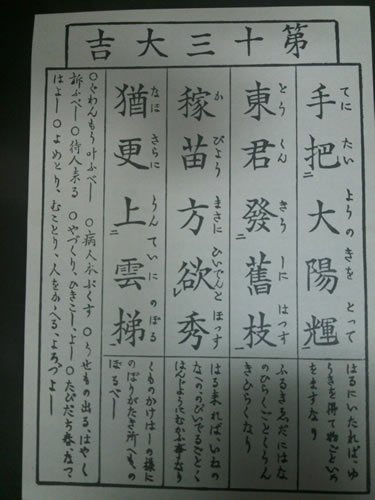 第十三大吉
手把二大陽輝一
てに たい ようのきを とって
東君發二舊枝一
とう くん きうしに はつす
稼苗方欲レ秀
か びよう まさに ひいでんと ほつす
猶更上二雲梯一
なほ さらに うんていに のぼる
はるにいたれば、ゆ
うきを得て物ごといの
をますなり
ふるきゑだにはな
のひらくごとくうん
きひらくなり
はる来れば、いねの
なへ、のびいでるごとく
はんじよにむかふ事なり
くものかけはしの様に
のぼりがたき所へも、の
ぼるべし
○ぐわんもう叶ふべし ○病人永びくす ○うせもの出る、はやく
訴ふべし ○待人来る ○やづくり、ひきこし、よし ○たびだち春、なつ
はよし ○よめとり、むことり、人をかゝへる、よろづよし